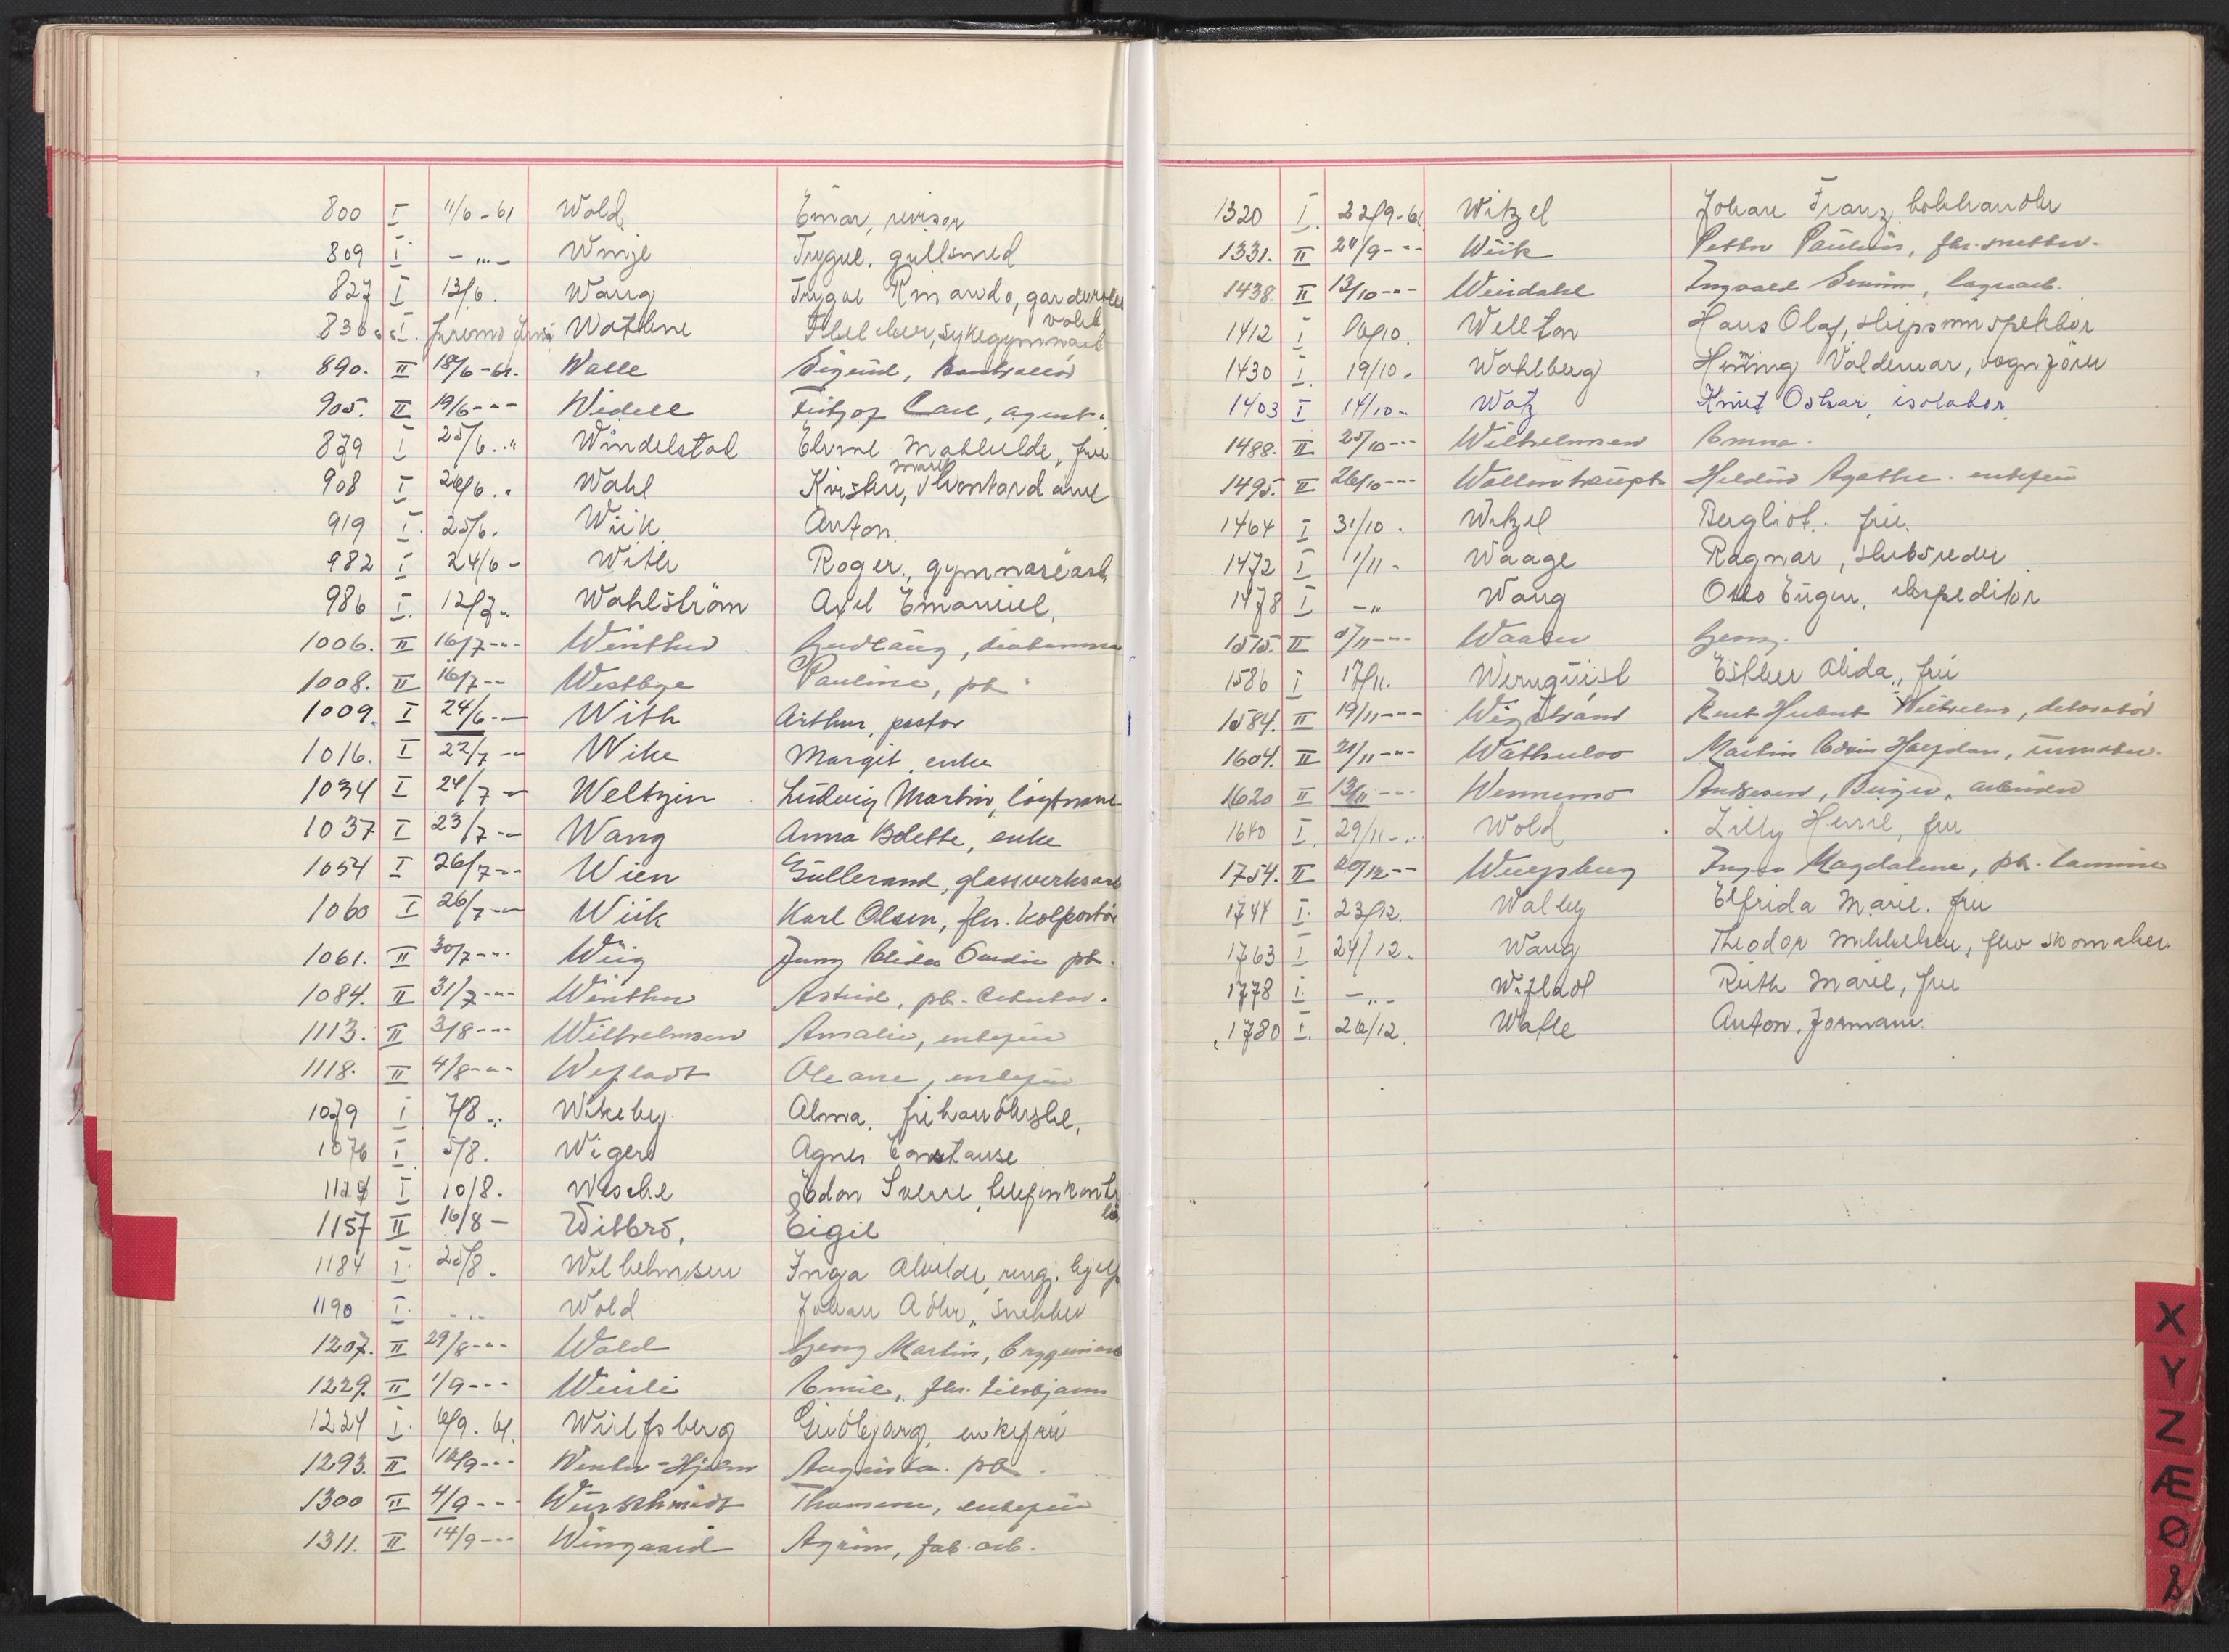 800 I 11/6-61 Wold Einar, revisor
809 I - " - Winje Trygve, gullsmed
827 I 13/6. Wang Trygve
830 I. Wathne sykegymnast
890. II 18/6-61. Walle Sigurd, kontrollør
905. II 19/6--- Widell Fritjof Carl, agent.
879 I 25/6.." Windelstad Mathilde, fru
908 I 26/6.. Wahl Kirstine, Marie
919 I. 25/6. Wiik Anton.
982 I 24/6- With Roger., gymnasiast
986 I. 12/7" Wahlström Axel Emanuel,
1006. II 16/7--- Winther Gudlaug,
1008. II 16/7-- Westbye Pauline, pk
1009. I 24/6-- With Arthur, pastor
1016. I 22/7-- Wike Margit, enke
1034 I 24/7- Weltzin Ludvig Martin, løytnant
1037 I 23/7-- Wang Anna Bolette, enke
1054 I 26/7-- Wien Gullerand, glassverksarb
1060 I 26/7-- Wiik Karl Olsen, fhv. kolportør
1061. II 30/7--- Wiig Jenny Alida pk.
1084. II 31/7--- Winther Astrid, pk.
1113. II 3/8--- Wilhelmsen Amalie, enkefru
1118. II 4/8--- Wefladt Oleane, enkefru
1079 I 7/8.. Wikeby Alma,
1076 I. 5/8. Wiger Agnes Constanse
1129 I 10/8. Wesche Sverre, telefonkontr
1157 II 16/8- Witbro, Eigil
1184 I. 25/8. Wilhelmsen Inga Alvilde, rengj. hjelp
1190 I. - .. Wold Johan Adler, snekker
1207. II 29/8--- Wold Georg Martin, bryggeriarb
1229. II 1/9--- Emil, fhv.
1224 I. 6/9. 61. Wulfsberg Gudbjørg, enkefru
1293. II 12/9--- Winter-Hjelm Augusta. pk.
1300 II 4/9--- Würschmidt enkefru
1311. II 14/9--- Wingaard fab. arb.
1320 I. 22/9-61 Witzel Johan Franz, bokhandler
1331. II 24/9--- Wiik Petter Paulus, fhv. snekker.
1438. II 13/10--- Weirdahl Ingvald lagerarb.
1412 I Wellton Hans Olaf, skipsinspektør
1430 I. 19/10. Wahlberg Henning Valdemar, vognfører
1403 I 14/10- Watz Knut Oskar, isolatør.
1488. II 25/10--- Wilhelmsen Emma.
1495. II 26/10--- Wallenhaupt Agathe. enkefru
1464 I 31/10. Witzel Bergliot. fru.
1472 I 1/11- Waage Ragnar, skibsreder
1478 I -" Wang Otto Eugen, ekspeditør
1515. II Waaler Georg.
1586 I 17/11. Wernquist Esther Alida, fru
1584. II 19/11--- Wigstrand Kurt Hubert Wilhelm, dekoratør
1604. II 21/11--- Watterloo Martin Halfdan, urmaker.
1620 II 13/11--- Wennemo Andersen, Birger,
1640 I. 29/11-.. Wold Lilly fru
1754. II 20/12-- Magdalene, pk.
1744 I. 23/12. Walby Elfrida Marie. fru
1763 I 24/12. Wang Theodor Mikkelsen, fhv skomaker.
1778 I. -..- Wifladt Ruth Marie, fru
1780 I. 26/12. Walle Anton, formann.
X
Y
Z
Æ
Ø
Å